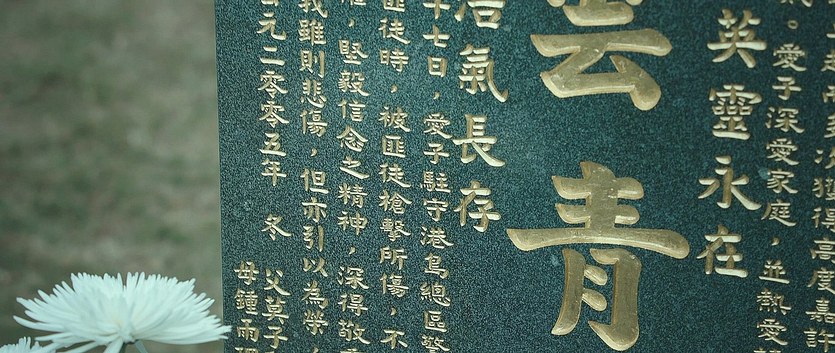 獲得高度嘉許
。愛子深愛家庭，並熱愛
英靈永在
雲青
浩氣長存
十七日，愛子駐守港島總區警
匪徒時，被匪徒槍擊所傷，不
，堅毅信念之精神，深得敬
我雖則悲傷，但亦引以為榮，
元二零零五年 冬 父莫子
母鍾雨